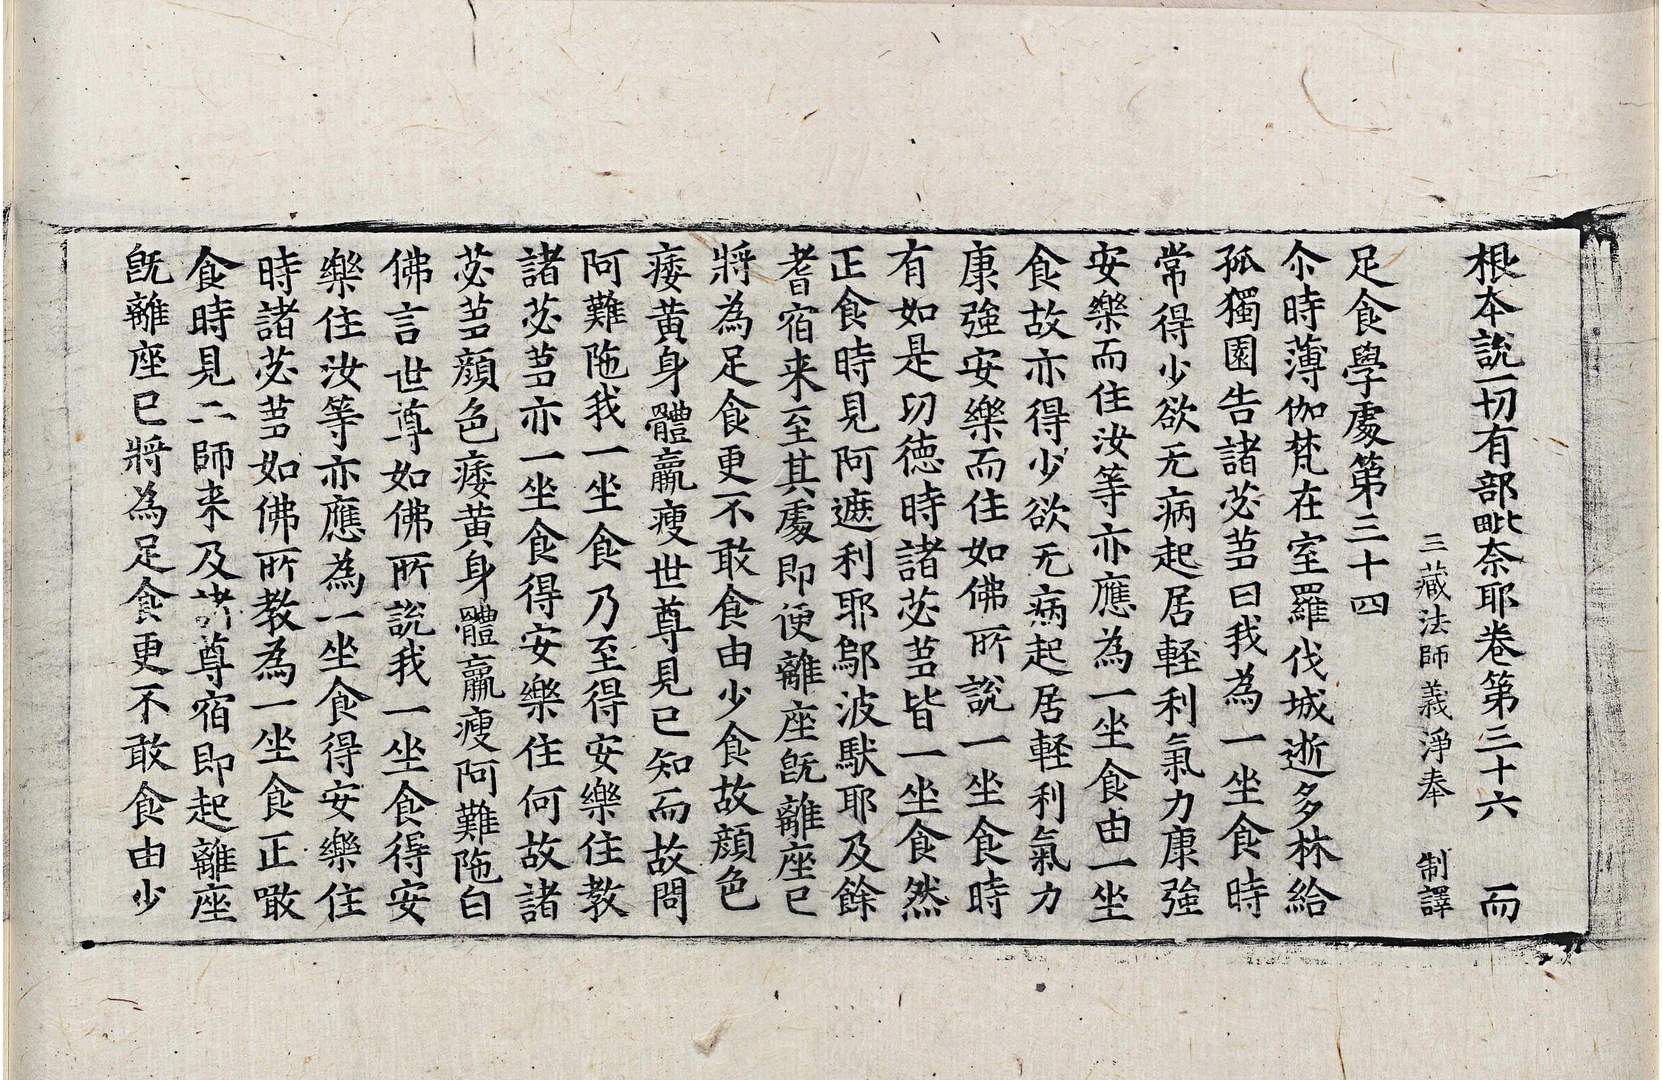 根本説一切有部毗奈耶卷第三十六　而
三藏法師義淨奉　制譯
足食學處第三十四
尒時薄伽梵在室羅伐城逝多林給
孤獨園告諸苾蒭曰我為一坐食時
常得少欲无病起居輕利氣力康強
安樂而住汝等亦應為一坐食由一坐
食故亦得少欲无病起居輕利氣力
康強安樂而住如佛所說一坐食時
有如是㓛德時諸苾蒭皆一坐食然
正食時見阿遮利耶鄔波馱耶及餘
耆宿来至其處即便離座旣離座已
將為足食更不敢食由少食故顔色
痿黃身體羸瘦世尊見已知而故問
阿難陁我一坐食乃至得安樂住教
諸苾蒭亦一坐食得安樂住何故諸
苾蒭顔色痿黃身體羸瘦阿難陁白
佛言世尊如佛所說我一坐食得安
樂住汝等亦應為一坐食得安樂住
時諸苾蒭如佛所教為一坐食正噉
食時見二師来及諸尊宿即起離座
旣離座已將為足食更不敢食由少